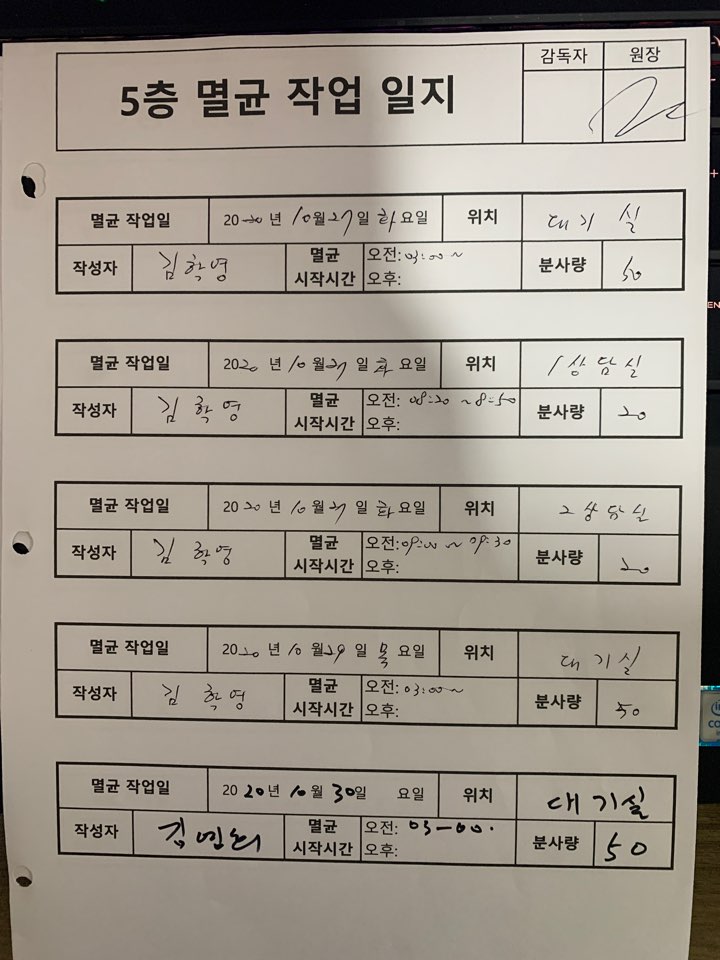 감독자 원장
5층 멸균 작업 일지
멸균 작업일 2020년 10월 27일 화요일 위치 대기실
작성자 김학영 멸균 시작시간 오전: 03:00~ 분사량 50
오후:
멸균 작업일 2020년 10월 27일 화요일 위치 1상담실
작성자 김학영 멸균 시작시간 오전: 08:20 ~ 8:50 분사량 20
오후:
멸균 작업일 2020년 10월 27일 화요일 위치 2상담실
작성자 김학영 멸균 시작시간 오전: 09:00 ~ 09:30 분사량 20
오후:
멸균 작업일 2020년 10월 29일 목요일 위치 대기실
작성자 김학영 멸균 시작시간 오전: 03:00~ 분사량 50
오후:
멸균 작업일 2020년 10월 30일 요일 위치 대기실
작성자 멸균 시작시간 오전: 03-00. 분사량 50
오후: